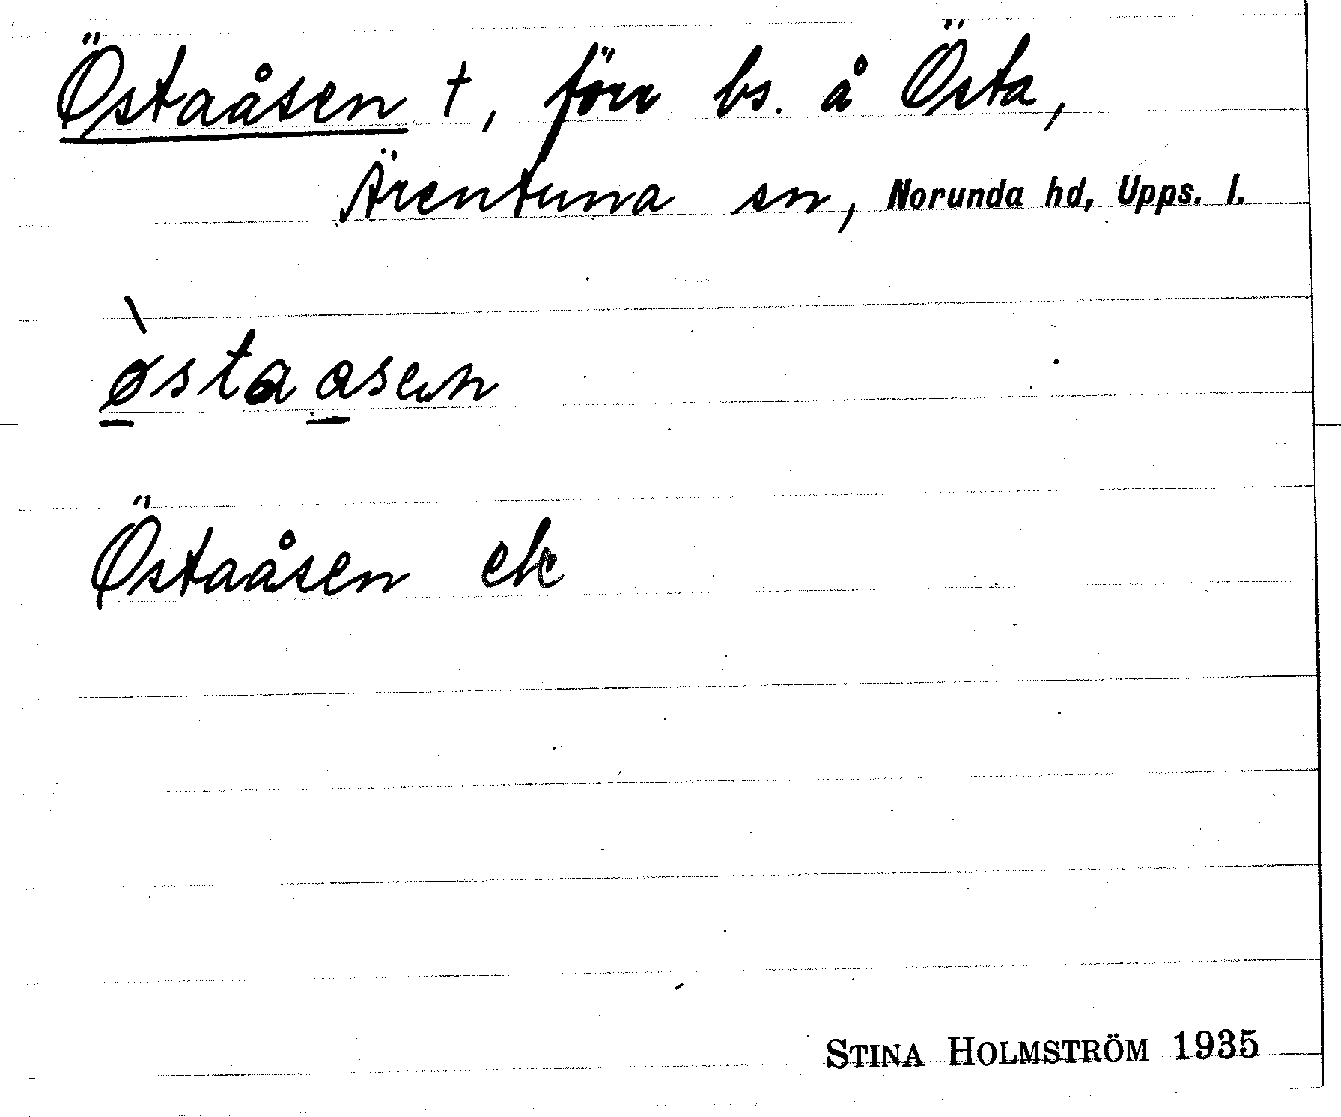 Östaåsen †, förr bs. å Östa,
Ärentuna sn, Norunda hd, Upps. l.
ø̀staasen
Östaåsen ek
STINA HOLMSTRÖM 1935